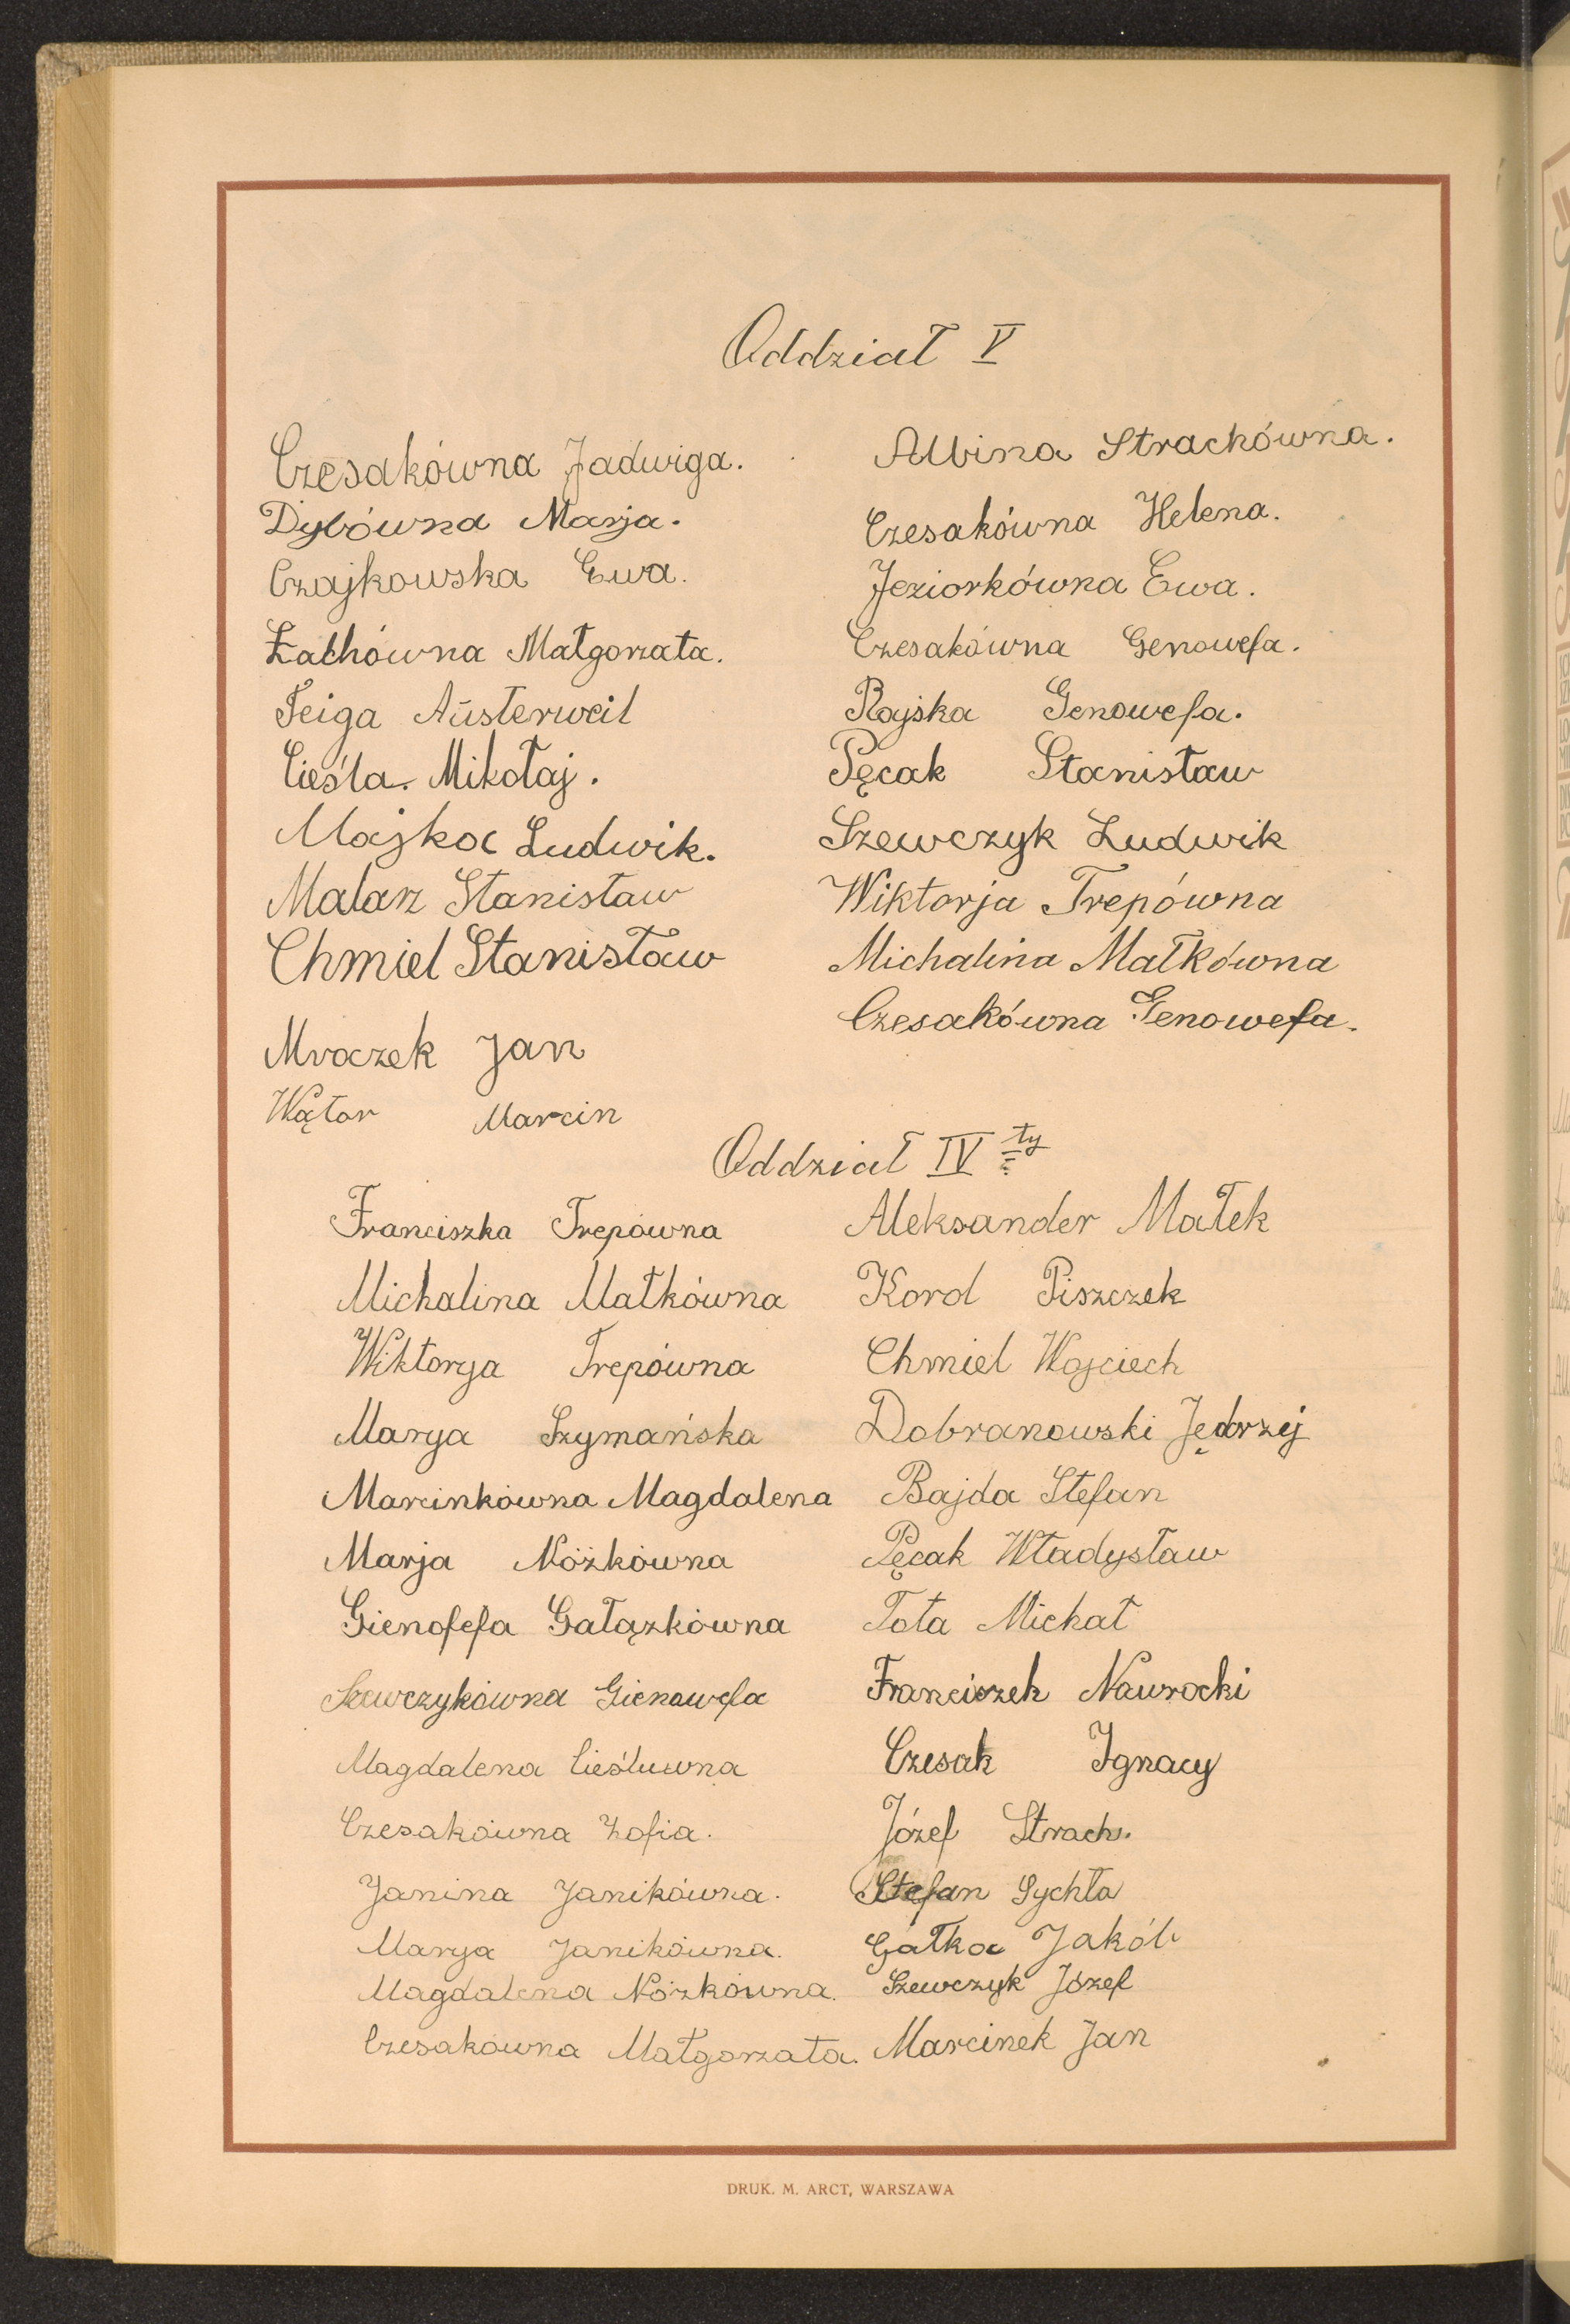 Oddział V
Czesakówna Jadwiga.
Dybówna Marja.
Czajkowska Ewa.
Łachówna Małgorzata.
Feiga Austerweil
Cieśla Mikołaj.
Majkoc Ludwik.
Malarz Stanisław
Chmiel Stanisław
Mroczek Jan
Wątor Marcin
Albina Strachówna.
Czesakówna Helena.
Jeziorkówna Ewa.
Czesakówna Genowefa.
Rajska Genowefa.
Pęcak Stanisław
Szewczyk Ludwik
Wiktorja Trepówna
Michalina Małkówna
Czesakówna Genowefa.
Oddział IV ty
Franciszka Trepówna
Michalina Małkówna
Wiktorya Trepówna
Marya Szymańska
Marcinkówna Magdalena
Marja Nóżkówna
Gienofefa Gałązkówna
Szewczykówna Gienowefa
Magdalena Cieśluwna
Czesakówna Zofia.
Janina Janikówna.
Marya Janikówna.
Magdalena Nózkówna.
Czesakówna Małgorzata.
Aleksander Małek
Karol Piszczek
Chmiel Wojciech
Dobranowski Jędrzej
Bajda Stefan
Pęcak Władysław
Tota Michał
Franciszek Nawrocki
Czesak Ignacy
Józef Strach.
Stefan Sychta
Gałka Jakób
Szewczyk Józef
Marcinek Jan
DRUK. M. ARCT, WARSZAWA